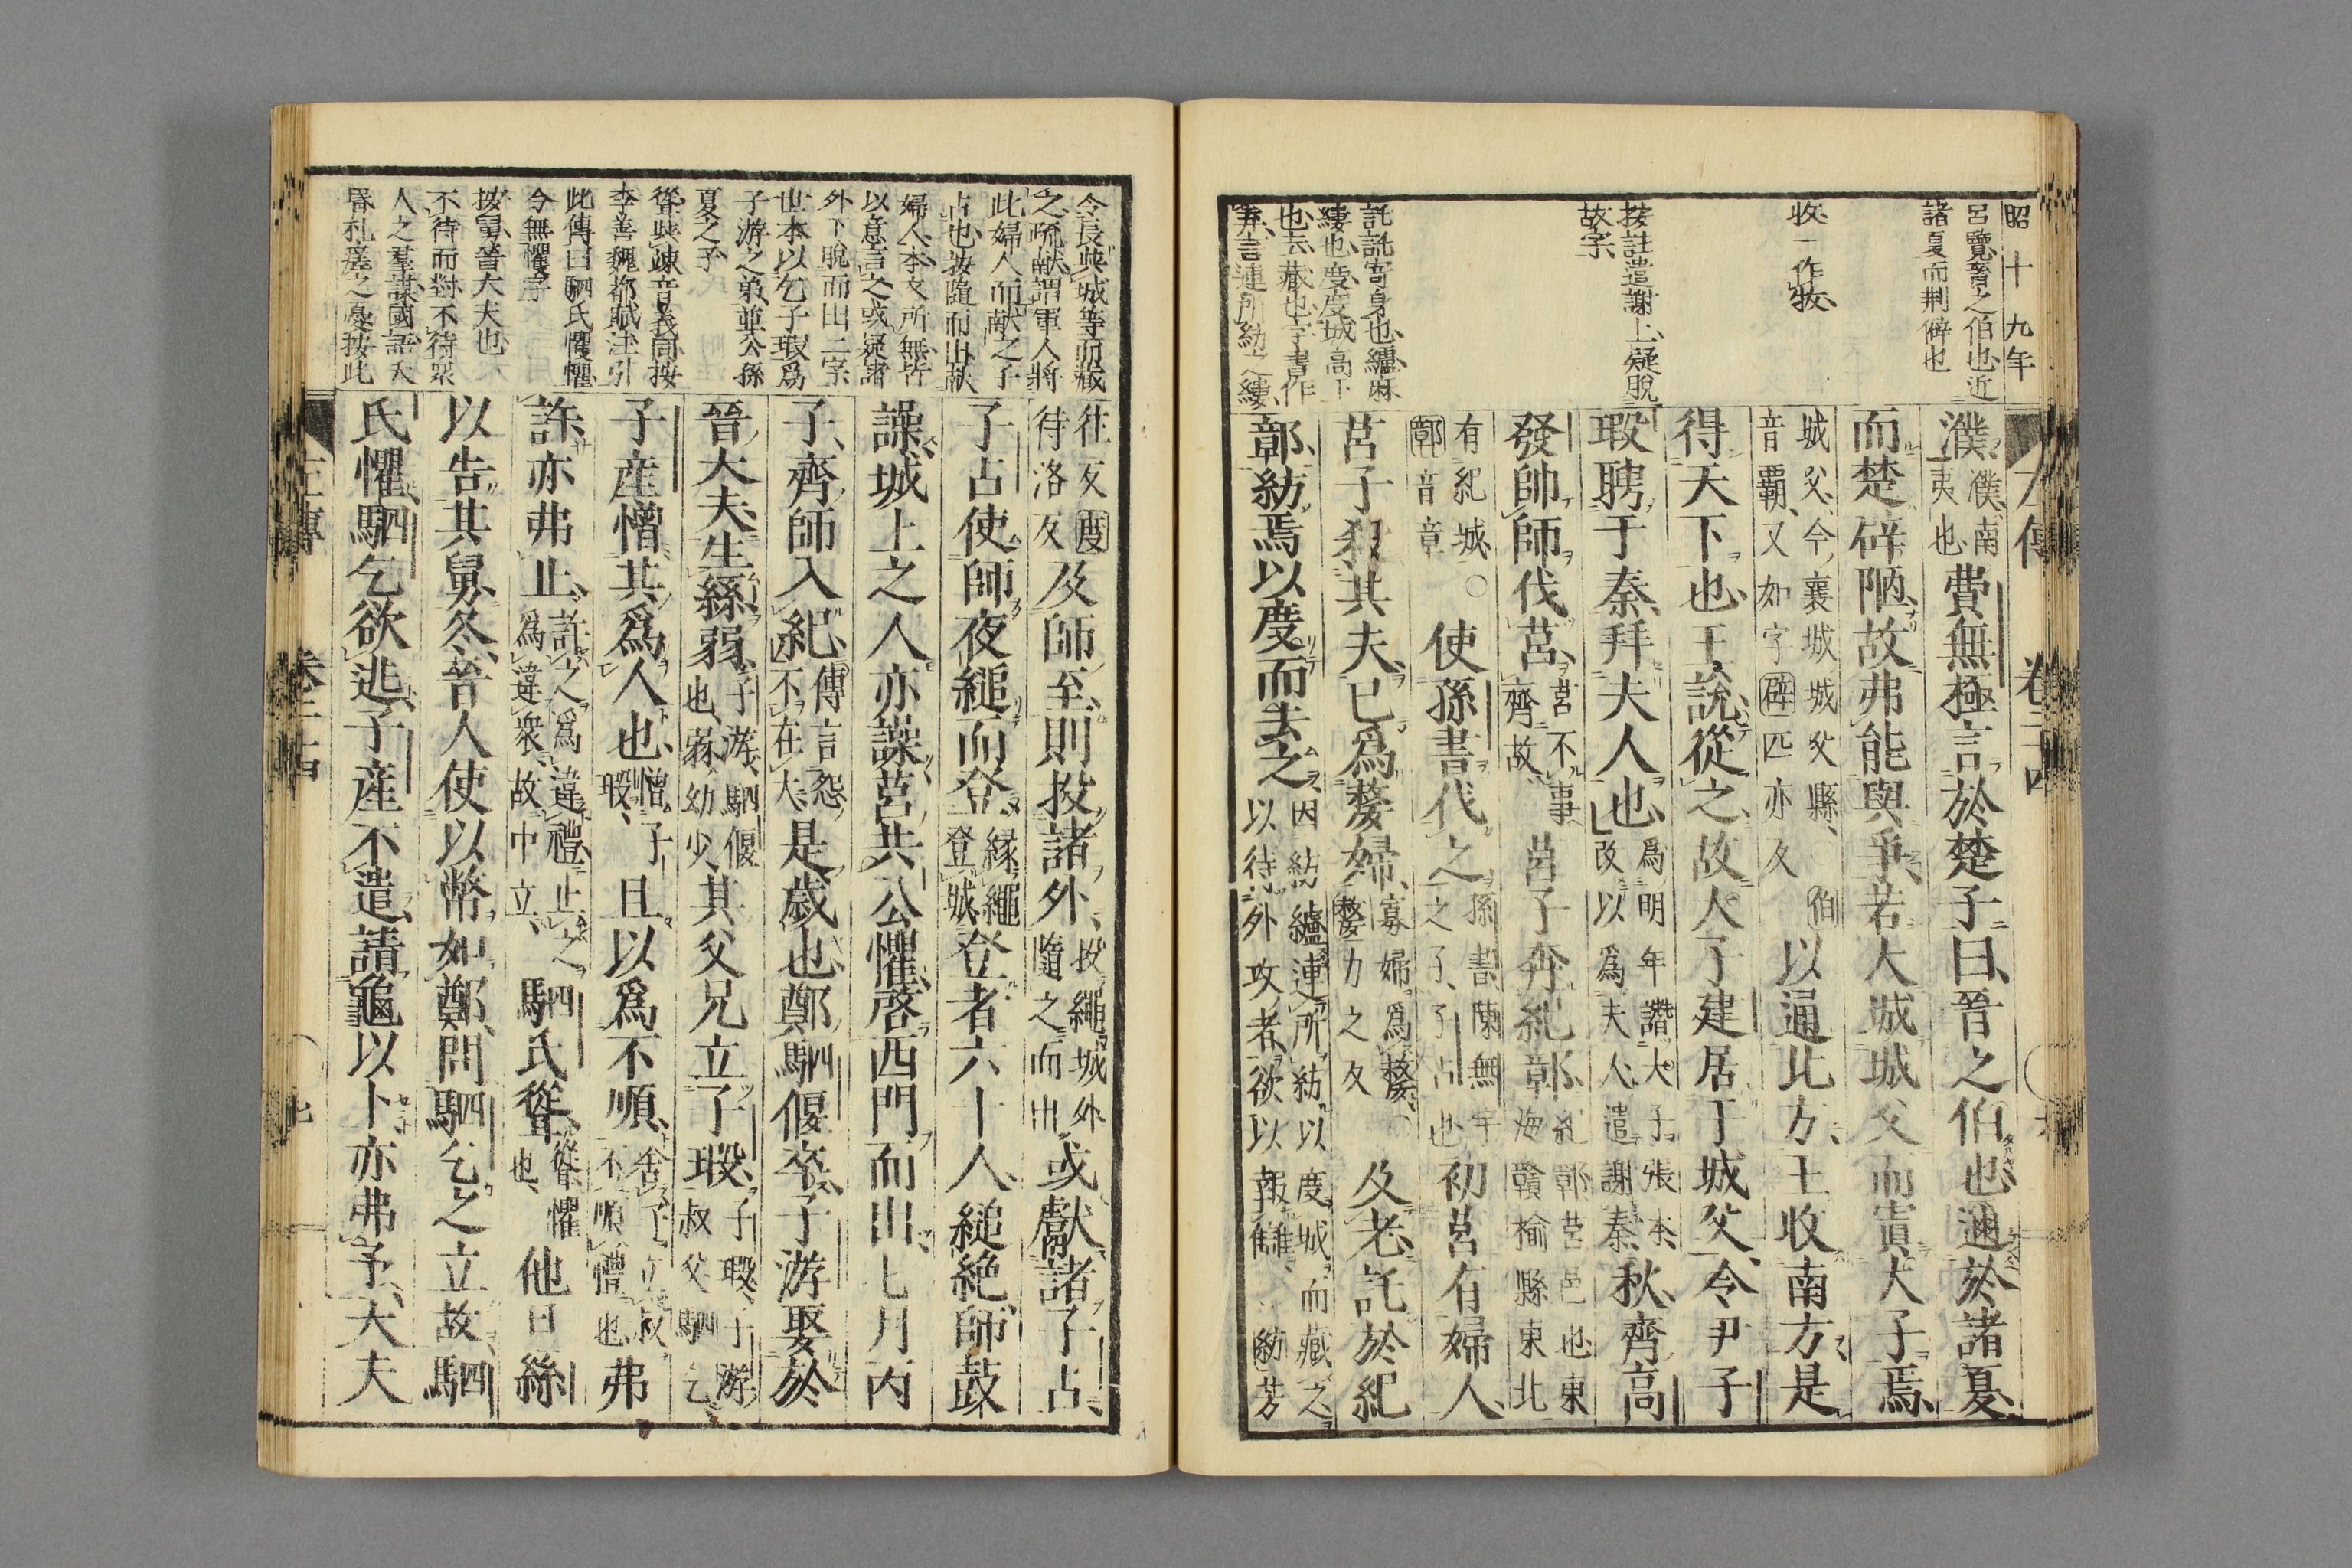 昭十九年
呂覽晉之伯也近
諸夏而荆僻也
收一作牧
按註遣謝上疑脫
故字
託託寄身也纑麻
縷也度度城高下
也去藏也字書作
弆言連所紡之縷
左傳
卷二十四
濮濮南
夷也費無極言於楚子曰晉之伯也邇於諸夏
而楚辟陋故弗能與爭若大城城父而寘大子焉
城父今襄城城父縣伯
音霸又如字辟匹亦反以通北方王收南方是
得天下也王說從之故大子建居于城父令尹子
瑕聘于秦拜夫人也爲明年譖大子張本
改以爲夫人遣謝秦秋齊高
發帥師伐莒莒不事
齊故莒子奔紀鄣紀鄣莒邑也東
海贛榆縣東北
有紀城○
鄣音章使孫書伐之孫書陳無宇
之子子占也初莒有婦人
莒子殺其夫已爲嫠婦寡婦爲嫠○
嫠力之反及老託於紀
鄣紡焉以度而去之因紡纑連所紡以度城而藏之
以待外攻者欲以報讎紡芳
令長與城等而藏
之疏献謂軍人將
此婦人而献之子
占也按隨而出献
婦人本文所無皆
以意言之或疑諸
外下脫而出二字
世本以乞子瑕爲
子游之弟並公孫
夏之子
聳與竦音義同按
李善魏都賦注引
此傳曰駟氏㦜懼
今無懼字
按舅晉大夫也
不待而對不待衆
人之羣謀國語大
昬札瘥之憂按此
往反度
待洛反及師至則投諸外投繩城外
隨之而出或獻諸子占
子占使師夜縋而登緣繩
登城登者六十人縋絕師鼓
譟城上之人亦譟莒共公懼啓西門而出七月丙
子齊師入紀傳言怨
不在大是歲也鄭駟偃卒子游娶於
晉大夫生絲弱子游駟偃
也弱幼少其父兄立子瑕子瑕子游
叔父駟乞
子産憎其爲人也憎子
瑕且以爲不順舍子立叔
不順禮也弗
許亦弗止許之爲違禮止之
爲違衆故中立駟氏聳聳懼
也他日絲
以告其舅冬晉人使以幣如鄭問駟乞之立故駟
氏懼駟乞欲逃子産不遣請龜以卜亦弗予大夫
左傳
卷二十四
七